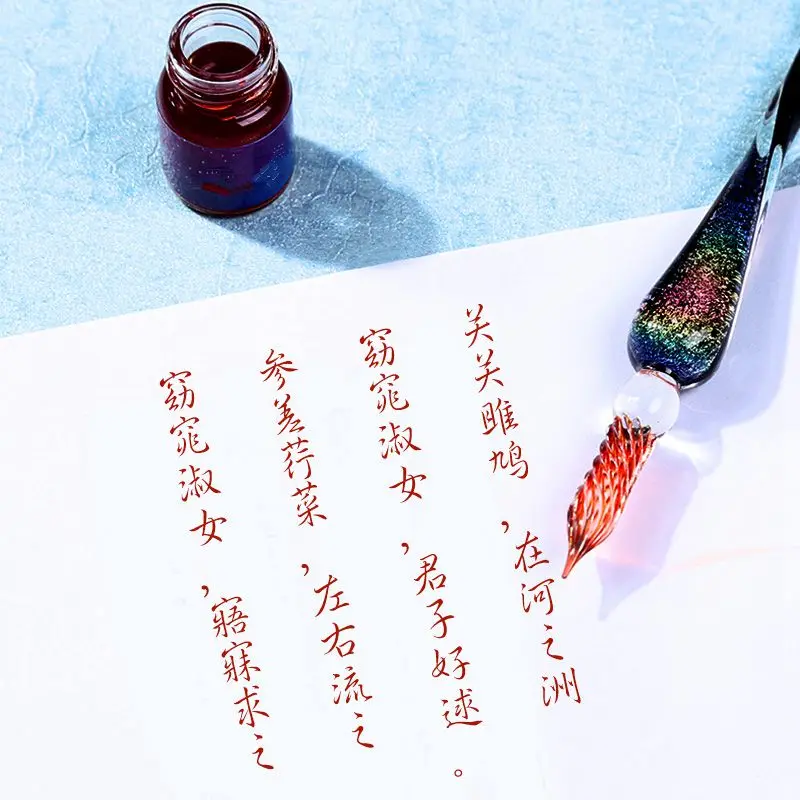 关关雎鸠，在河之洲
窈窕淑女，君子好逑。
参差荇菜，左右流之
窈窕淑女，寤寐求之